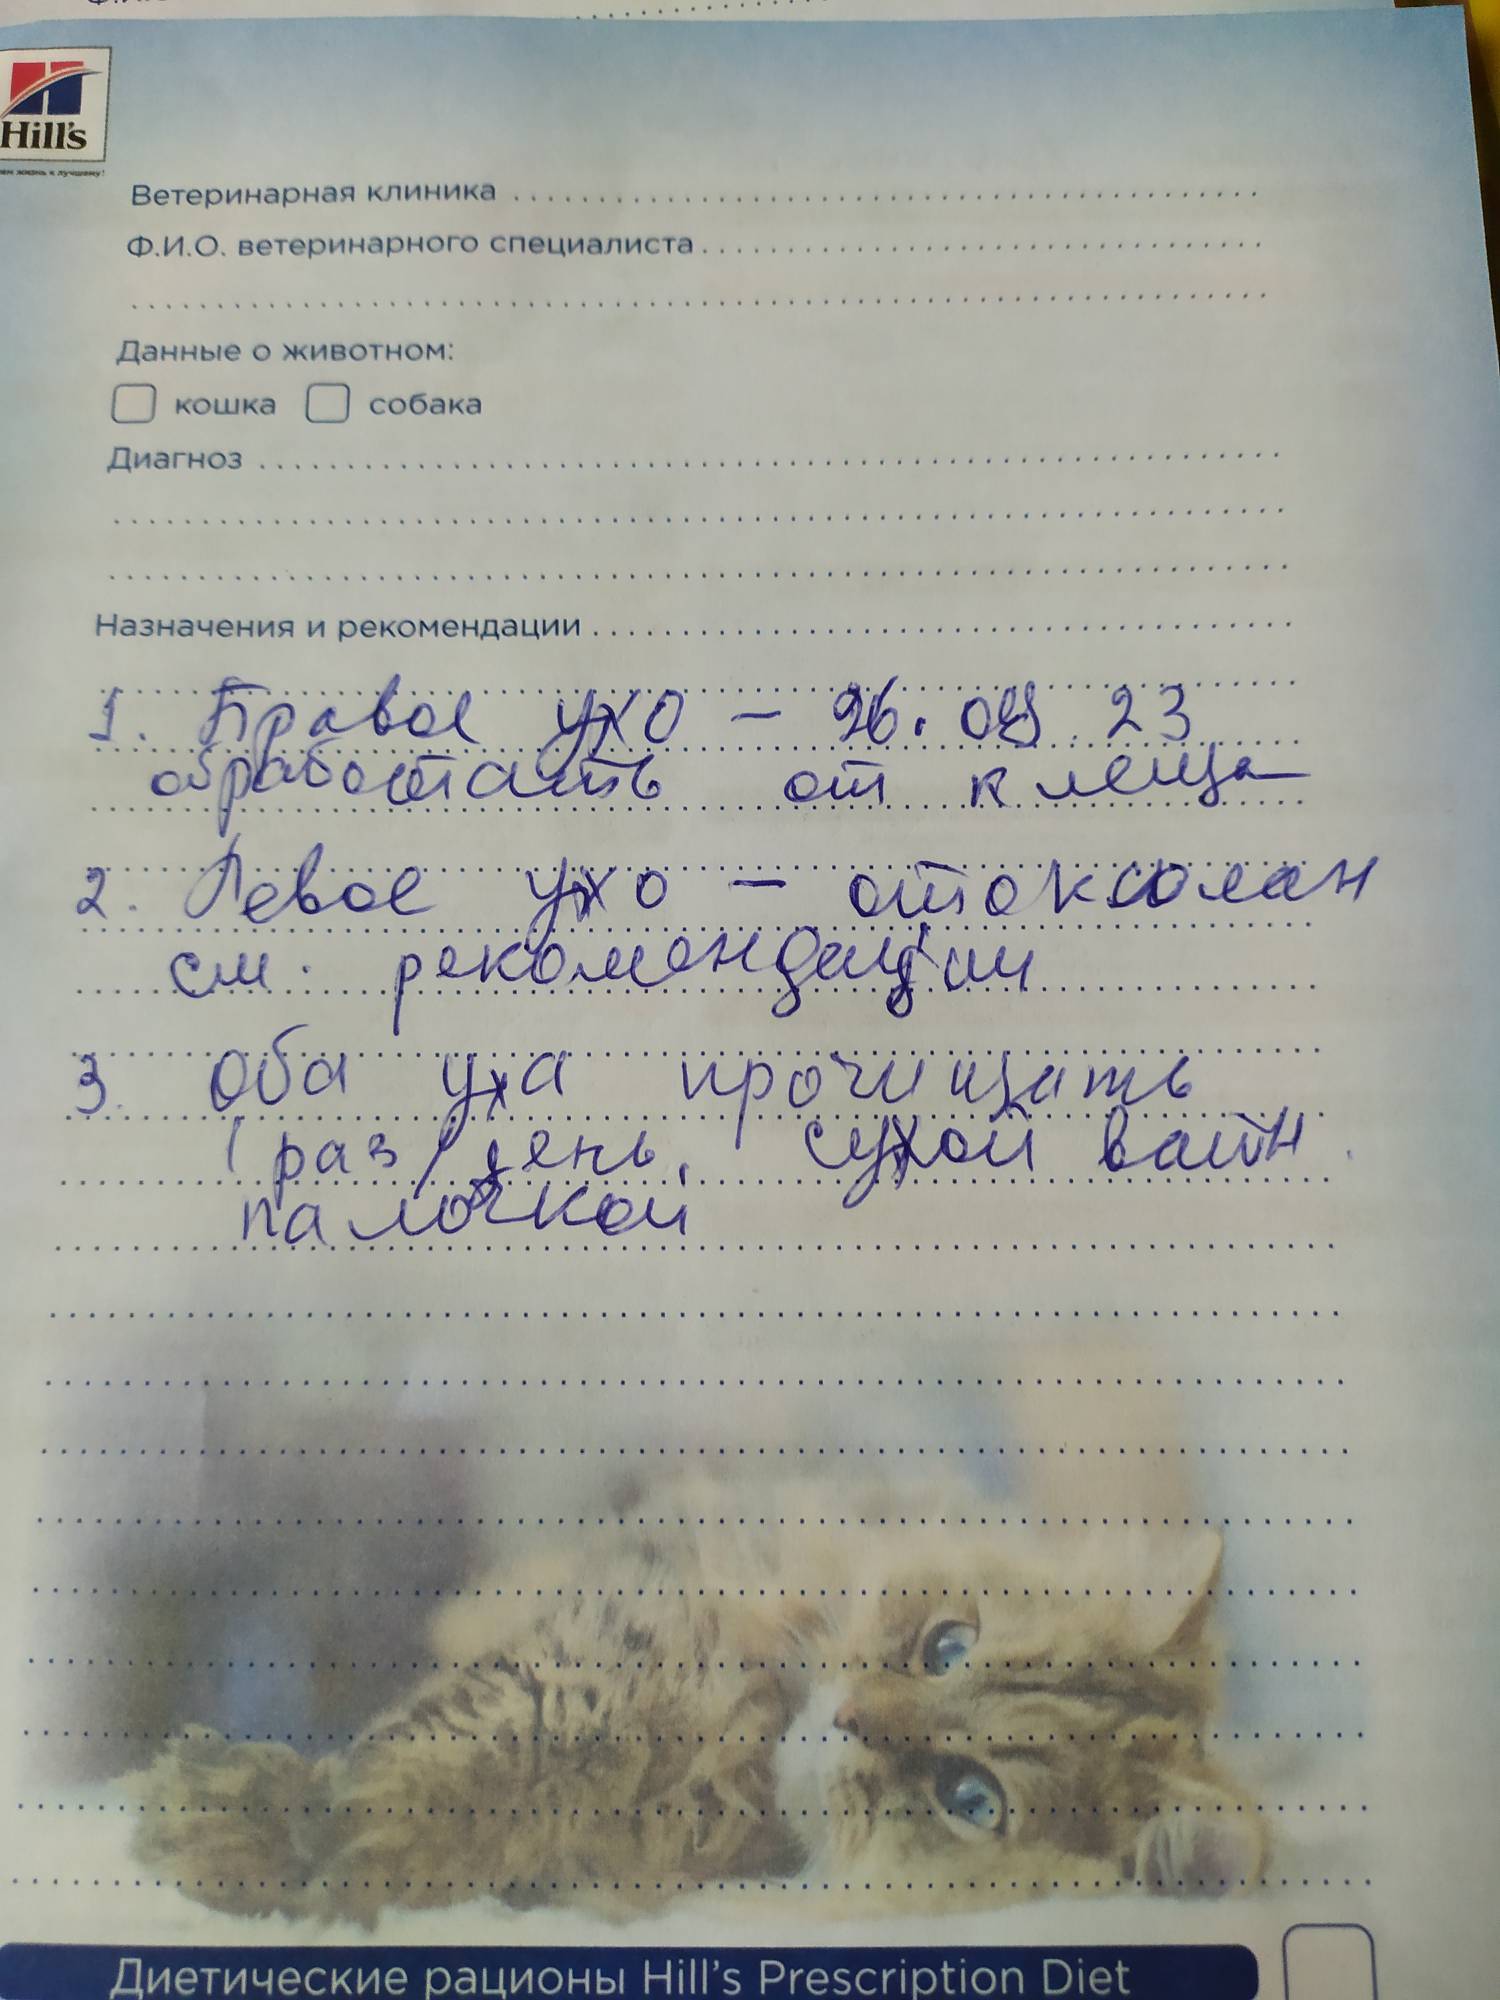 Hill's
Ветеринарная клиника
Ф.И.О. ветеринарного специалиста
Данные о животном:
кошка собака
Диагноз
Назначения и рекомендации
1. Правое ухо – 26. 04 23
обработать от клеща
2. Левое ухо – отоксолан
см. рекомендации
3. Оба уха прочищать
1 раз/день, сухой ватн.
палочкой
Диетические рационы Hill's Prescription Diet